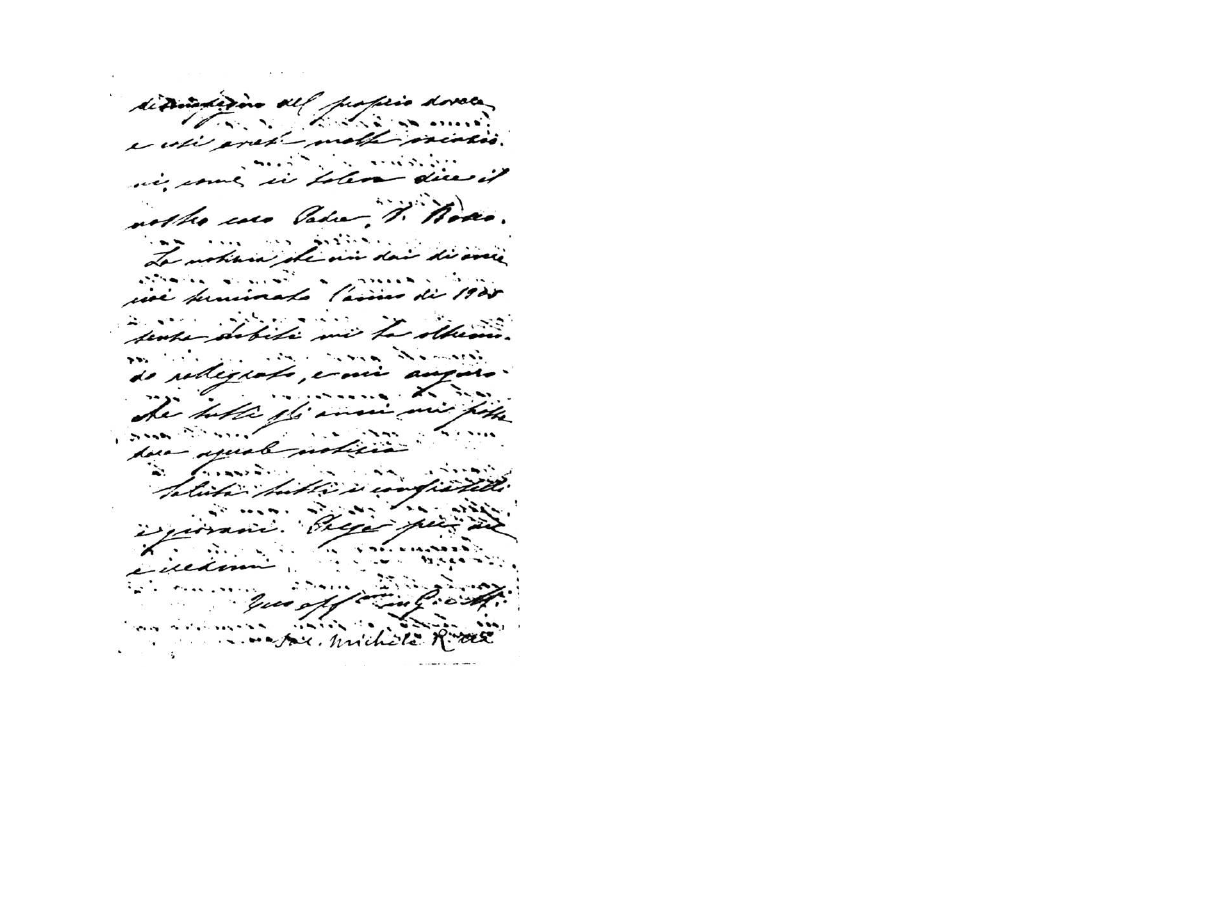 disimpegno del proprio dovere
e così avrai molte
ni, come ci soleva dire il
nostro caro Padre, D. Bosco.
La notizia che mi dai di aver
così terminato l'anno di 1905
senza debiti mi ha oltremo-
do rallegrato, e mi auguro
che tutti gli anni mi possa
dare eguale notizia
Saluta tutti i confratelli
e giovani. Prega per me
e credimi
Tuo aff.mo in G. e M.
Sac. Michele Rua